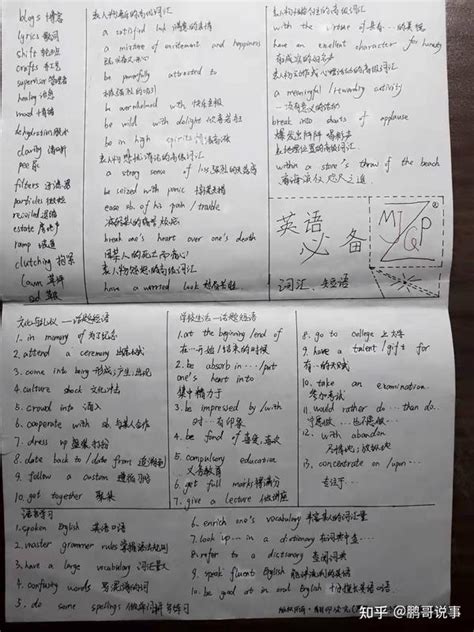 blogs 博客
lyrics 歌词
shift 轮班
crafts 手工艺
supervisor 管理者
healing 治愈
mood 情绪
dehydration 脱水
clarity 清晰
pee 尿
filters 过滤器
particles 微粒
recoiled 退缩
estate 房地产
ramp 坡道
clutching
lawn 草坪
ad
a satisfied look 满意的表情
a mixture of excitement and happiness
be powerfully attracted to
be wild with delight
be in high spirits
a strong sense of
be seized with panic
ease sb. of his pain / trouble
break one's heart over one's death
have a worried look
with the virtue of
have an excellent character for honesty
a meaningful / rewarding activity
break into shouts of applause
within a stone's throw of the beach
英语
必备
MJGP
词汇、短语
文化与礼仪 — 话题短语
1. in memory of 为了纪念
2. attend a ceremony 出席仪式
3. come into being 形成;产生;出现
4. culture shock 文化冲击
5. crowd into 涌入
6. cooperate with sb 与某人合作
7. dress up 盛装打扮
8. date back to / date from 追溯到
9. follow a custom 遵循习俗
10. get together 聚集
学校生活 — 话题短语
1. at the beginning / end of
在…开始/结束的时候
2. be absorb in … / put
one's heart into
集中精力于
3. be impressed by / with
对…有印象
4. be fond of 喜爱,喜欢
5. compulsory education
义务教育
6. get full marks 得满分
7. give a lecture 做讲座
8. go to college 上大学
9. have a talent / gift for
有…的天赋
10. take an examination
参加考试
11. would rather do … than do …
宁愿做…也不愿做…
12. with abandon
13. concentrate on / upon …
专注于…
语言学习
1. spoken English 英语口语
2. master grammar rules 掌握语法规则
3. have a large vocabulary 词汇量大
4. confusing words 易混淆的词
5. do some spellings 做单词拼写练习
6. enrich one's vocabulary 丰富某人的词汇量
7. look up … in a dictionary 在词典中查…
8. refer to a dictionary 查阅词典
9. speak fluent English 能讲流利的英语
10. be good at oral English 擅长英语口语
知乎 @鹏哥说事